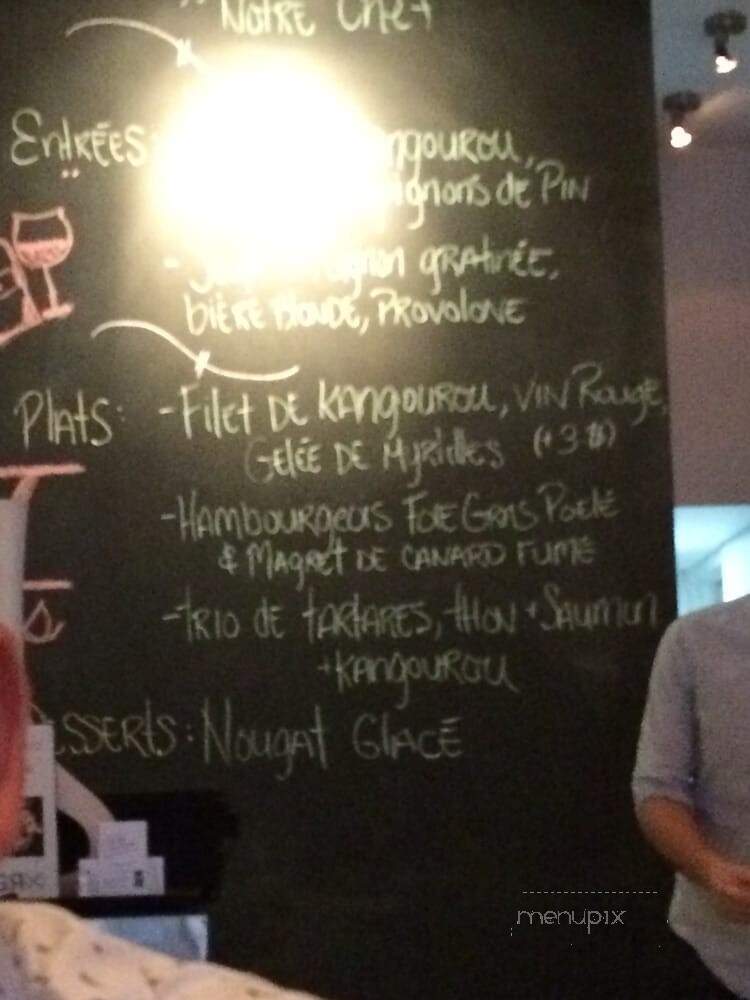 Notre Chef
Entrées:
de Pin
gratinée,
bière blonde, Provolone
Plats: -Filet de Kangourou, Vin Rouge,
Gelée de Myrtilles (+3$)
-Hambourgeois Foie Gras Poêlé
& Magret de canard fumé
-trio de tartares, thon + Saumon
+Kangourou
Nougat Glacé
menupix